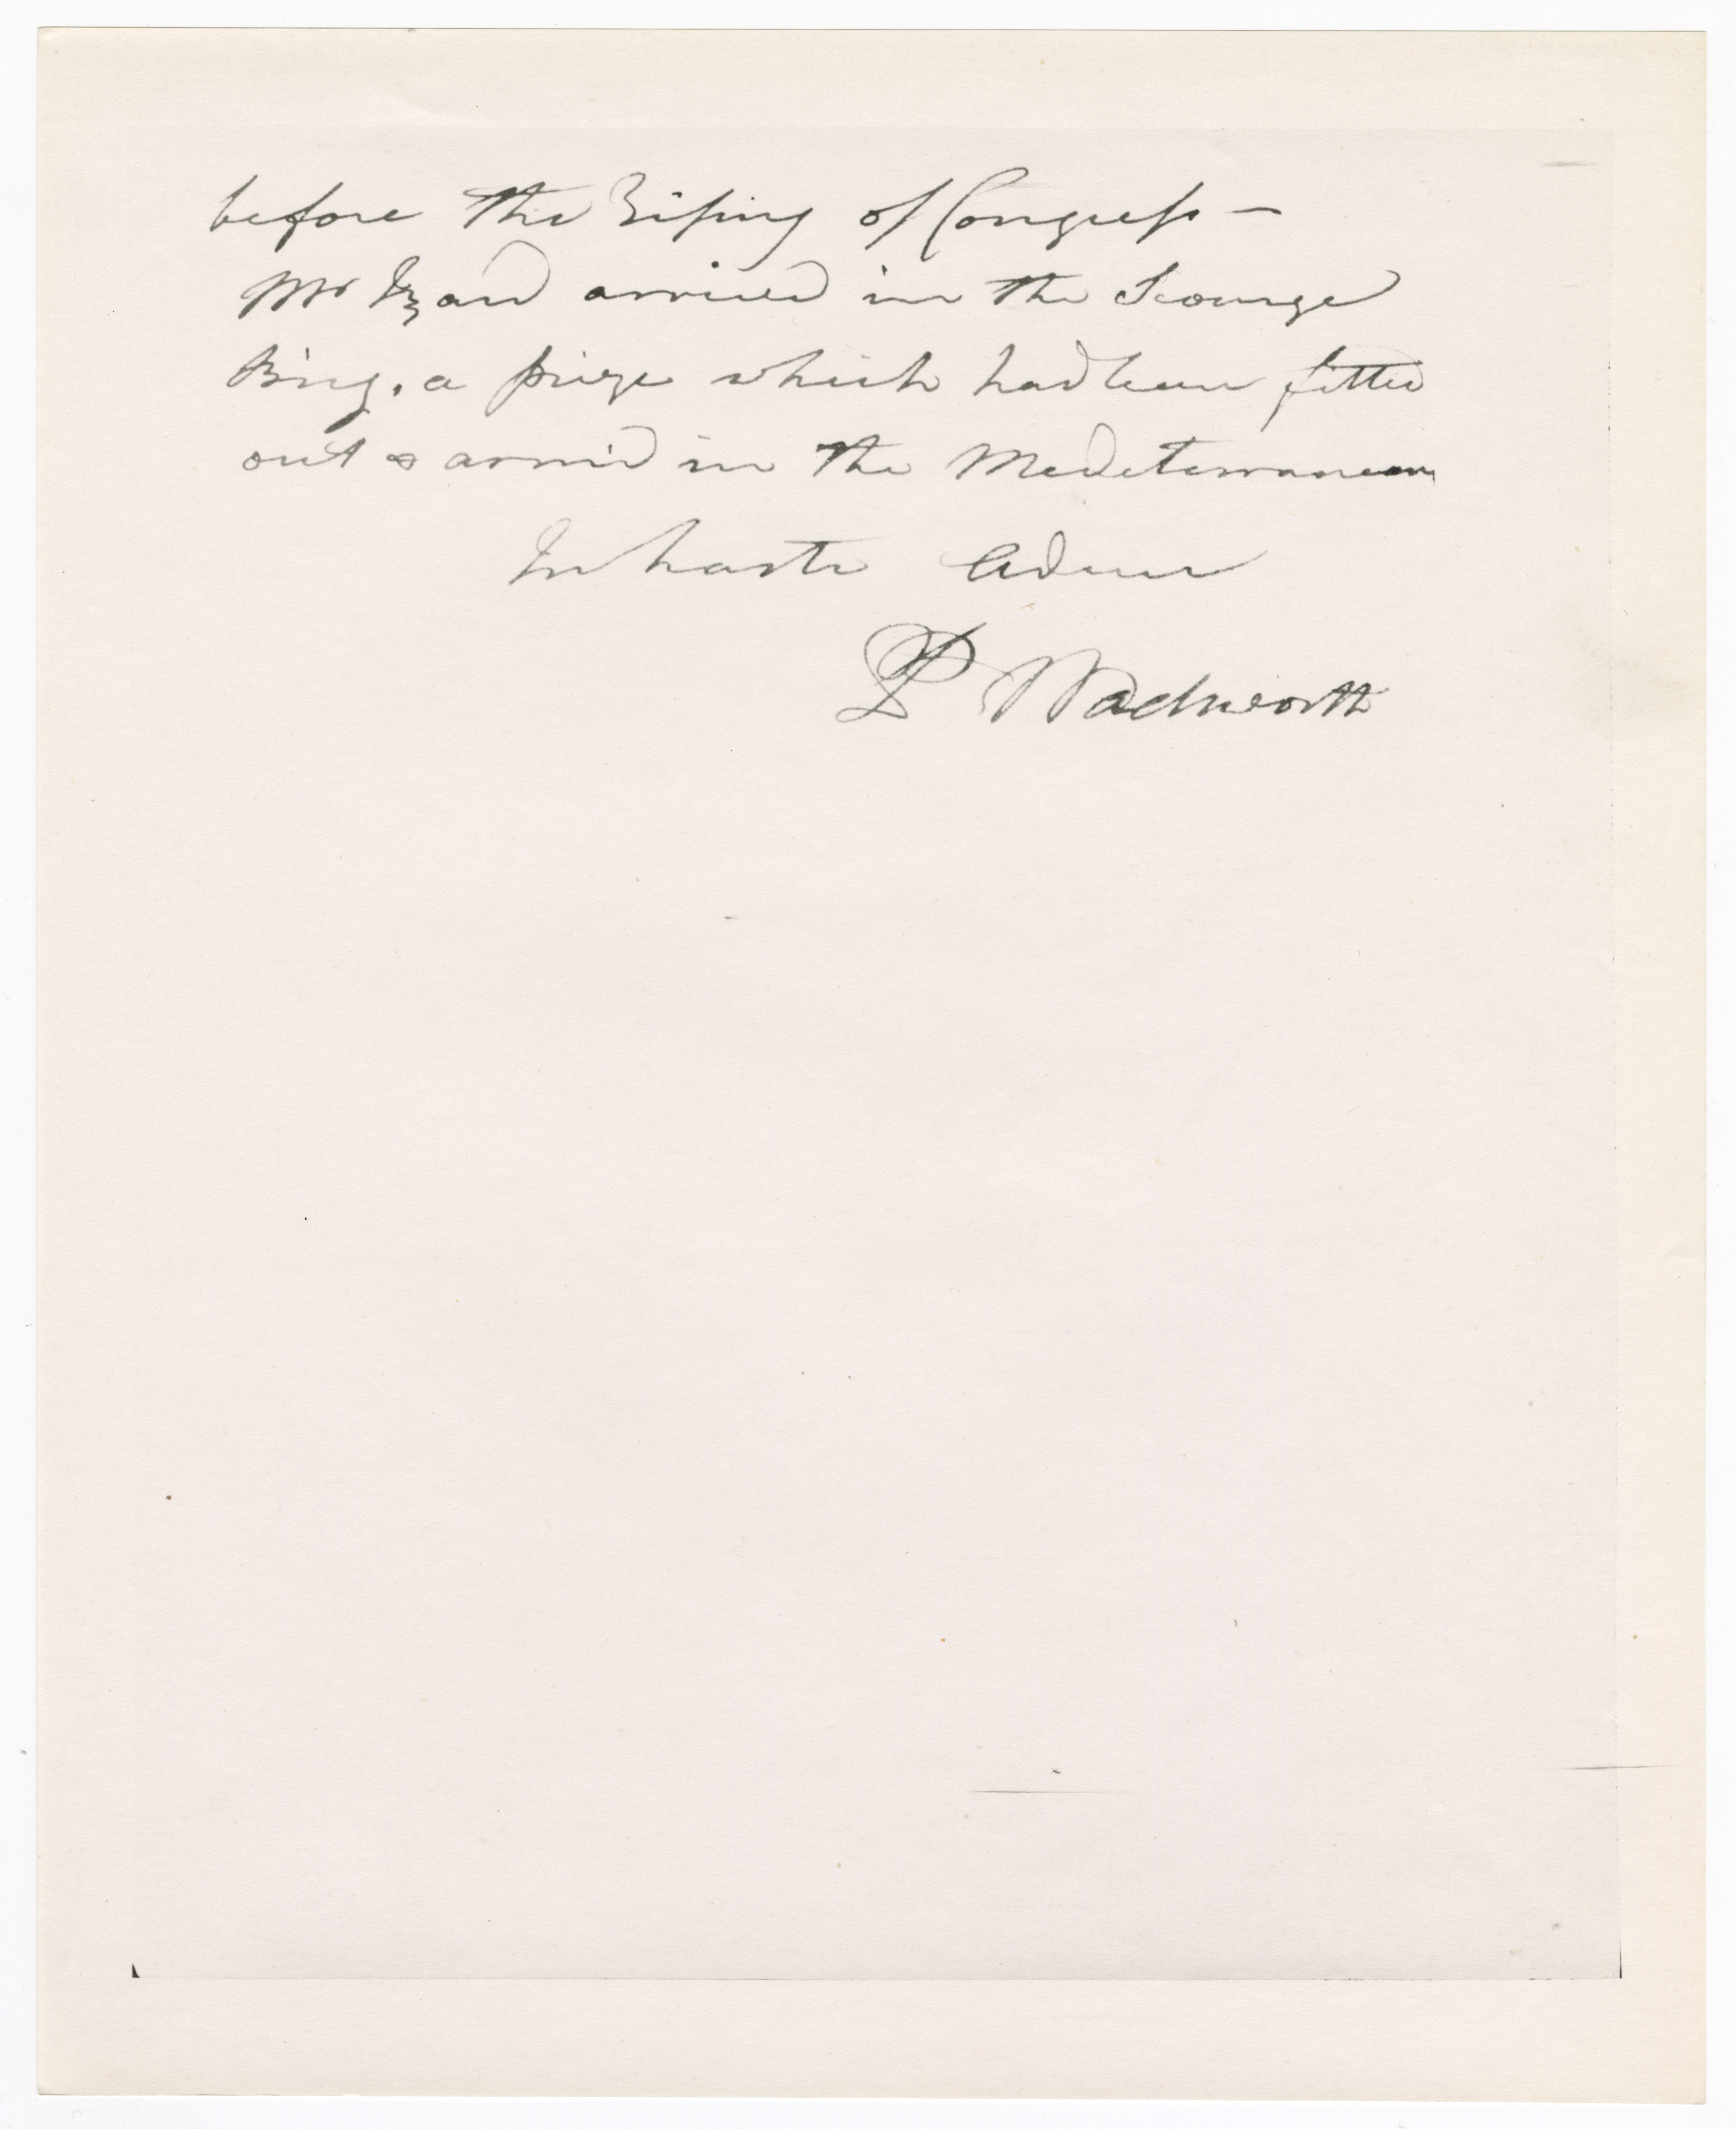 before the Rising of Congress —
Mr Izard arrived in the Scourge
Brig, a prize which had been fitted
out & armed in the Mediterranean
In haste Adieu
P Wadsworth